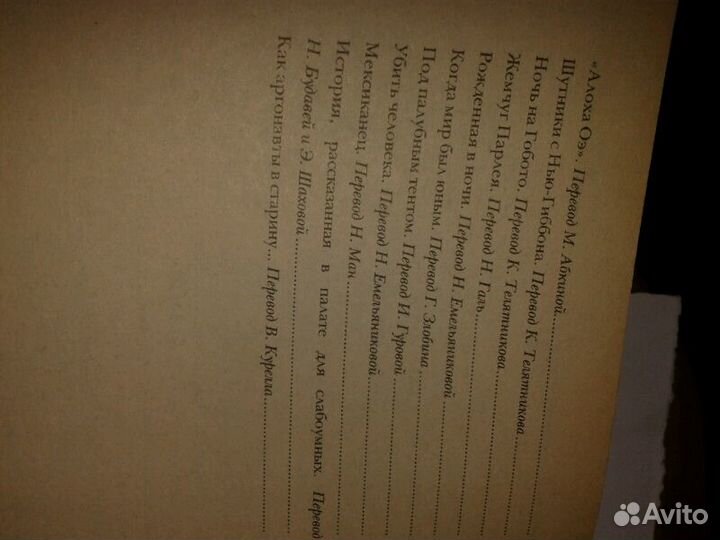 «Алоха Оэ». Перевод М. Абкиной
Шутники с Нью-Гиббона. Перевод К. Телятникова
Ночь на Гобото. Перевод К. Телятникова
Жемчуг Парлея. Перевод Н. Галь
Рожденная в ночи. Перевод Н. Емельяниковой
Когда мир был юным. Перевод Г. Злобина
Под палубным тентом. Перевод И. Гуровой
Убить человека. Перевод Н. Емельяниковой
Мексиканец. Перевод Н. Ман
История, рассказанная в палате для слабоумных. Перевод
Н. Будавей и Э. Шаховой
Как аргонавты в старину... Перевод В. Курелла
Avito